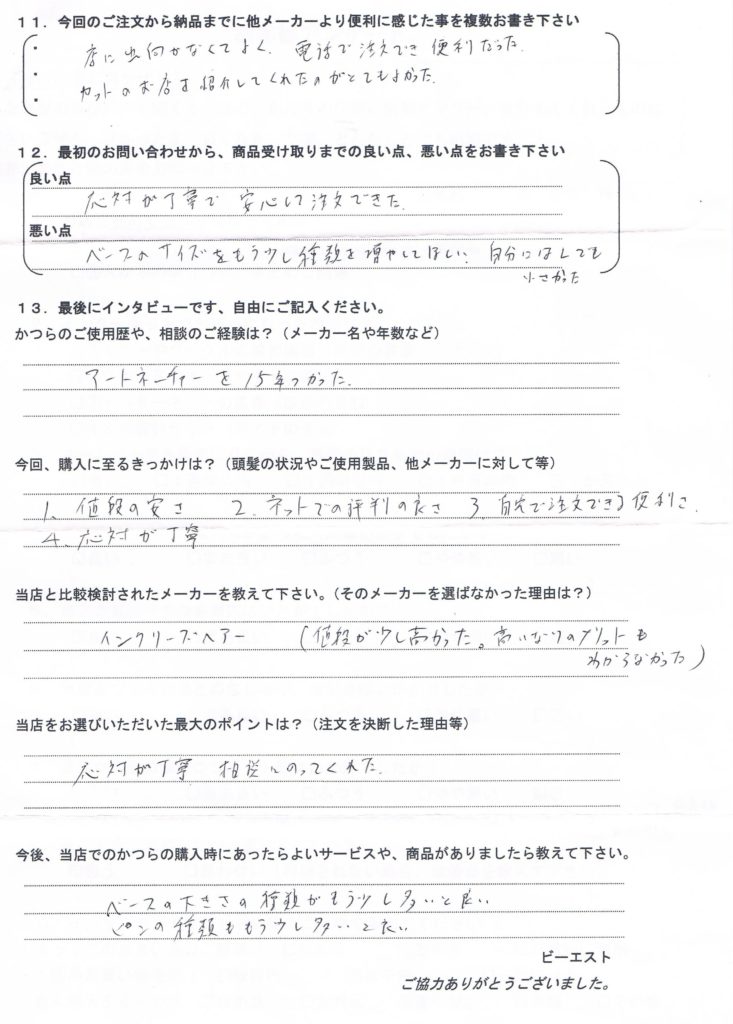 １１．今回のご注文から納品までに他メーカーより便利に感じた事を複数お書き下さい
・ 店に出向かなくてよく、電話で注文でき 便利だった。
・ カットのお店を紹介してくれたのがとてもよかった。
・
１２．最初のお問い合わせから、商品受け取りまでの良い点、悪い点をお書き下さい
良い点
応対が丁寧で 安心して注文できた。
悪い点
ベースのサイズをもう少し種類を増やしてほしい。自分にはLでも
小さかった
１３．最後にインタビューです、自由にご記入ください。
かつらのご使用歴や、相談のご経験は？（メーカー名や年数など）
アートネーチャーを 15年つかった。
今回、購入に至るきっかけは？（頭髪の状況やご使用製品、他メーカーに対して等）
1、値段の安さ 2、ネットでの評判の良さ 3、自宅で注文できる便利さ、
4、応対が丁寧
当店と比較検討されたメーカーを教えて下さい。（そのメーカーを選ばなかった理由は？）
インクリーズヘアー （値段が少し高かった。高いなりのメリットも
わからなかった）
当店をお選びいただいた最大のポイントは？（注文を決断した理由等）
応対が丁寧 相談にのってくれた。
今後、当店でのかつらの購入時にあったらよいサービスや、商品がありましたら教えて下さい。
ベースの大きさの種類がもう少し多いと良い
ピンの種類ももう少し多いと良い
ビーエスト
ご協力ありがとうございました。